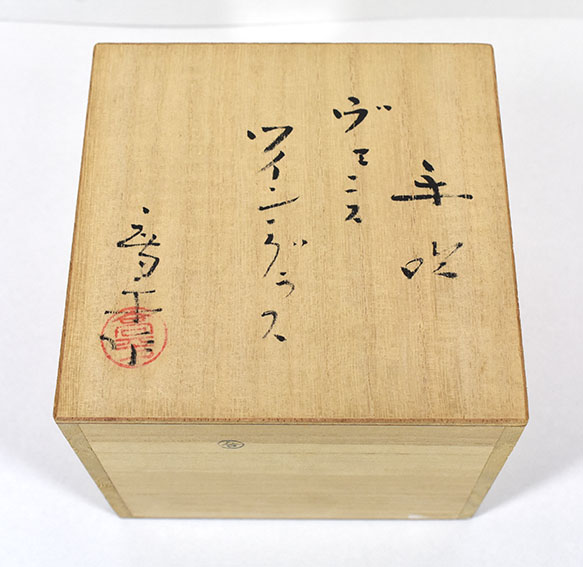 手吹
ヴェニス
ワイングラス
喬平作